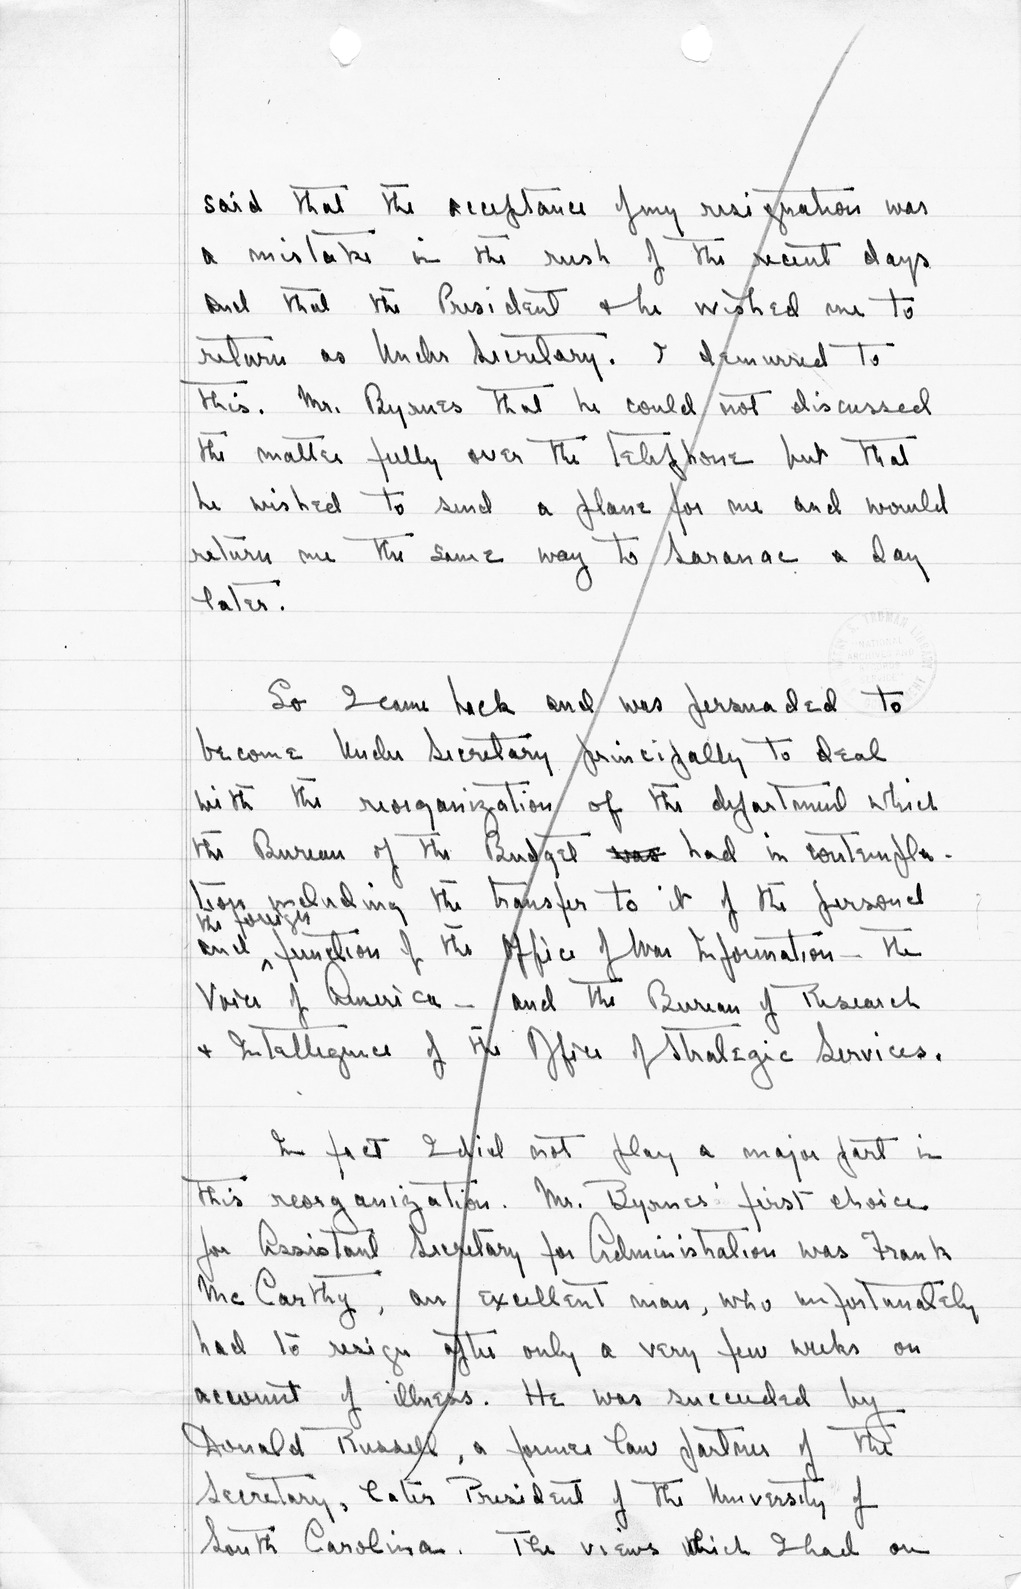 said that the acceptance of my resignation was
a mistake in the rush of the recent days
and that the President & he wished me to
return as Under Secretary. I demurred to
this. Mr. Byrnes that he could not discussed
the matter fully over the telephone but that
he wished to send a plane for me and would
return me the same way to Saranac a day
later.
So I came back and was persuaded to
become Under Secretary principally to deal
with the reorganization of the department which
the Bureau of the Budget was had in contempla-
tion including the transfer to it of the personel
the foreign
and ^ function of the Office of War Information – the
Voice of America – and the Bureau of Research
& Intelligence of the Office of Strategic Services.
In fact I did not play a major part in
this reorganization. Mr. Byrnes' first choice
for Assistant Secretary for Administration was Frank
McCarthy, an excellent man, who unfortunately
had to resign after only a very few weeks on
account of illness. He was succeeded by
Donald Russell, a former law partner of the
Secretary, later President of the University of
South Carolina. The views which I had on